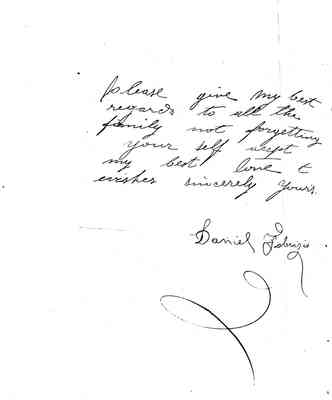 please give my best
regards to all the
family not forgetting
your self
my best love &
wishes sincerely yours.
Daniel